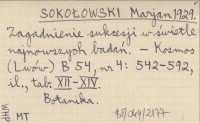 SOKOŁOWSKI Marjan 1929.
Zagadnienie sukcesji w świetle
najnowszych badań. - Kosmos
(Lwów) B 54, nr 4: 542-592,
il., tab. XII-XIV.
Botanika.
WHP MT